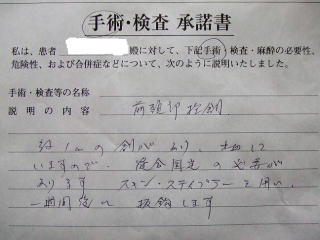 手術・検査 承諾書
私は、患者 殿に対して、下記手術・検査・麻酔の必要性、
危険性、および合併症などについて、次のように説明いたしました。
手術・検査等の名称
説明の内容 前頭部挫創
約 1cm の創があり、出血して
いますので、縫合固定の必要が
あります スキン・ステイプラーを用い、
一週間後に 抜鈎します